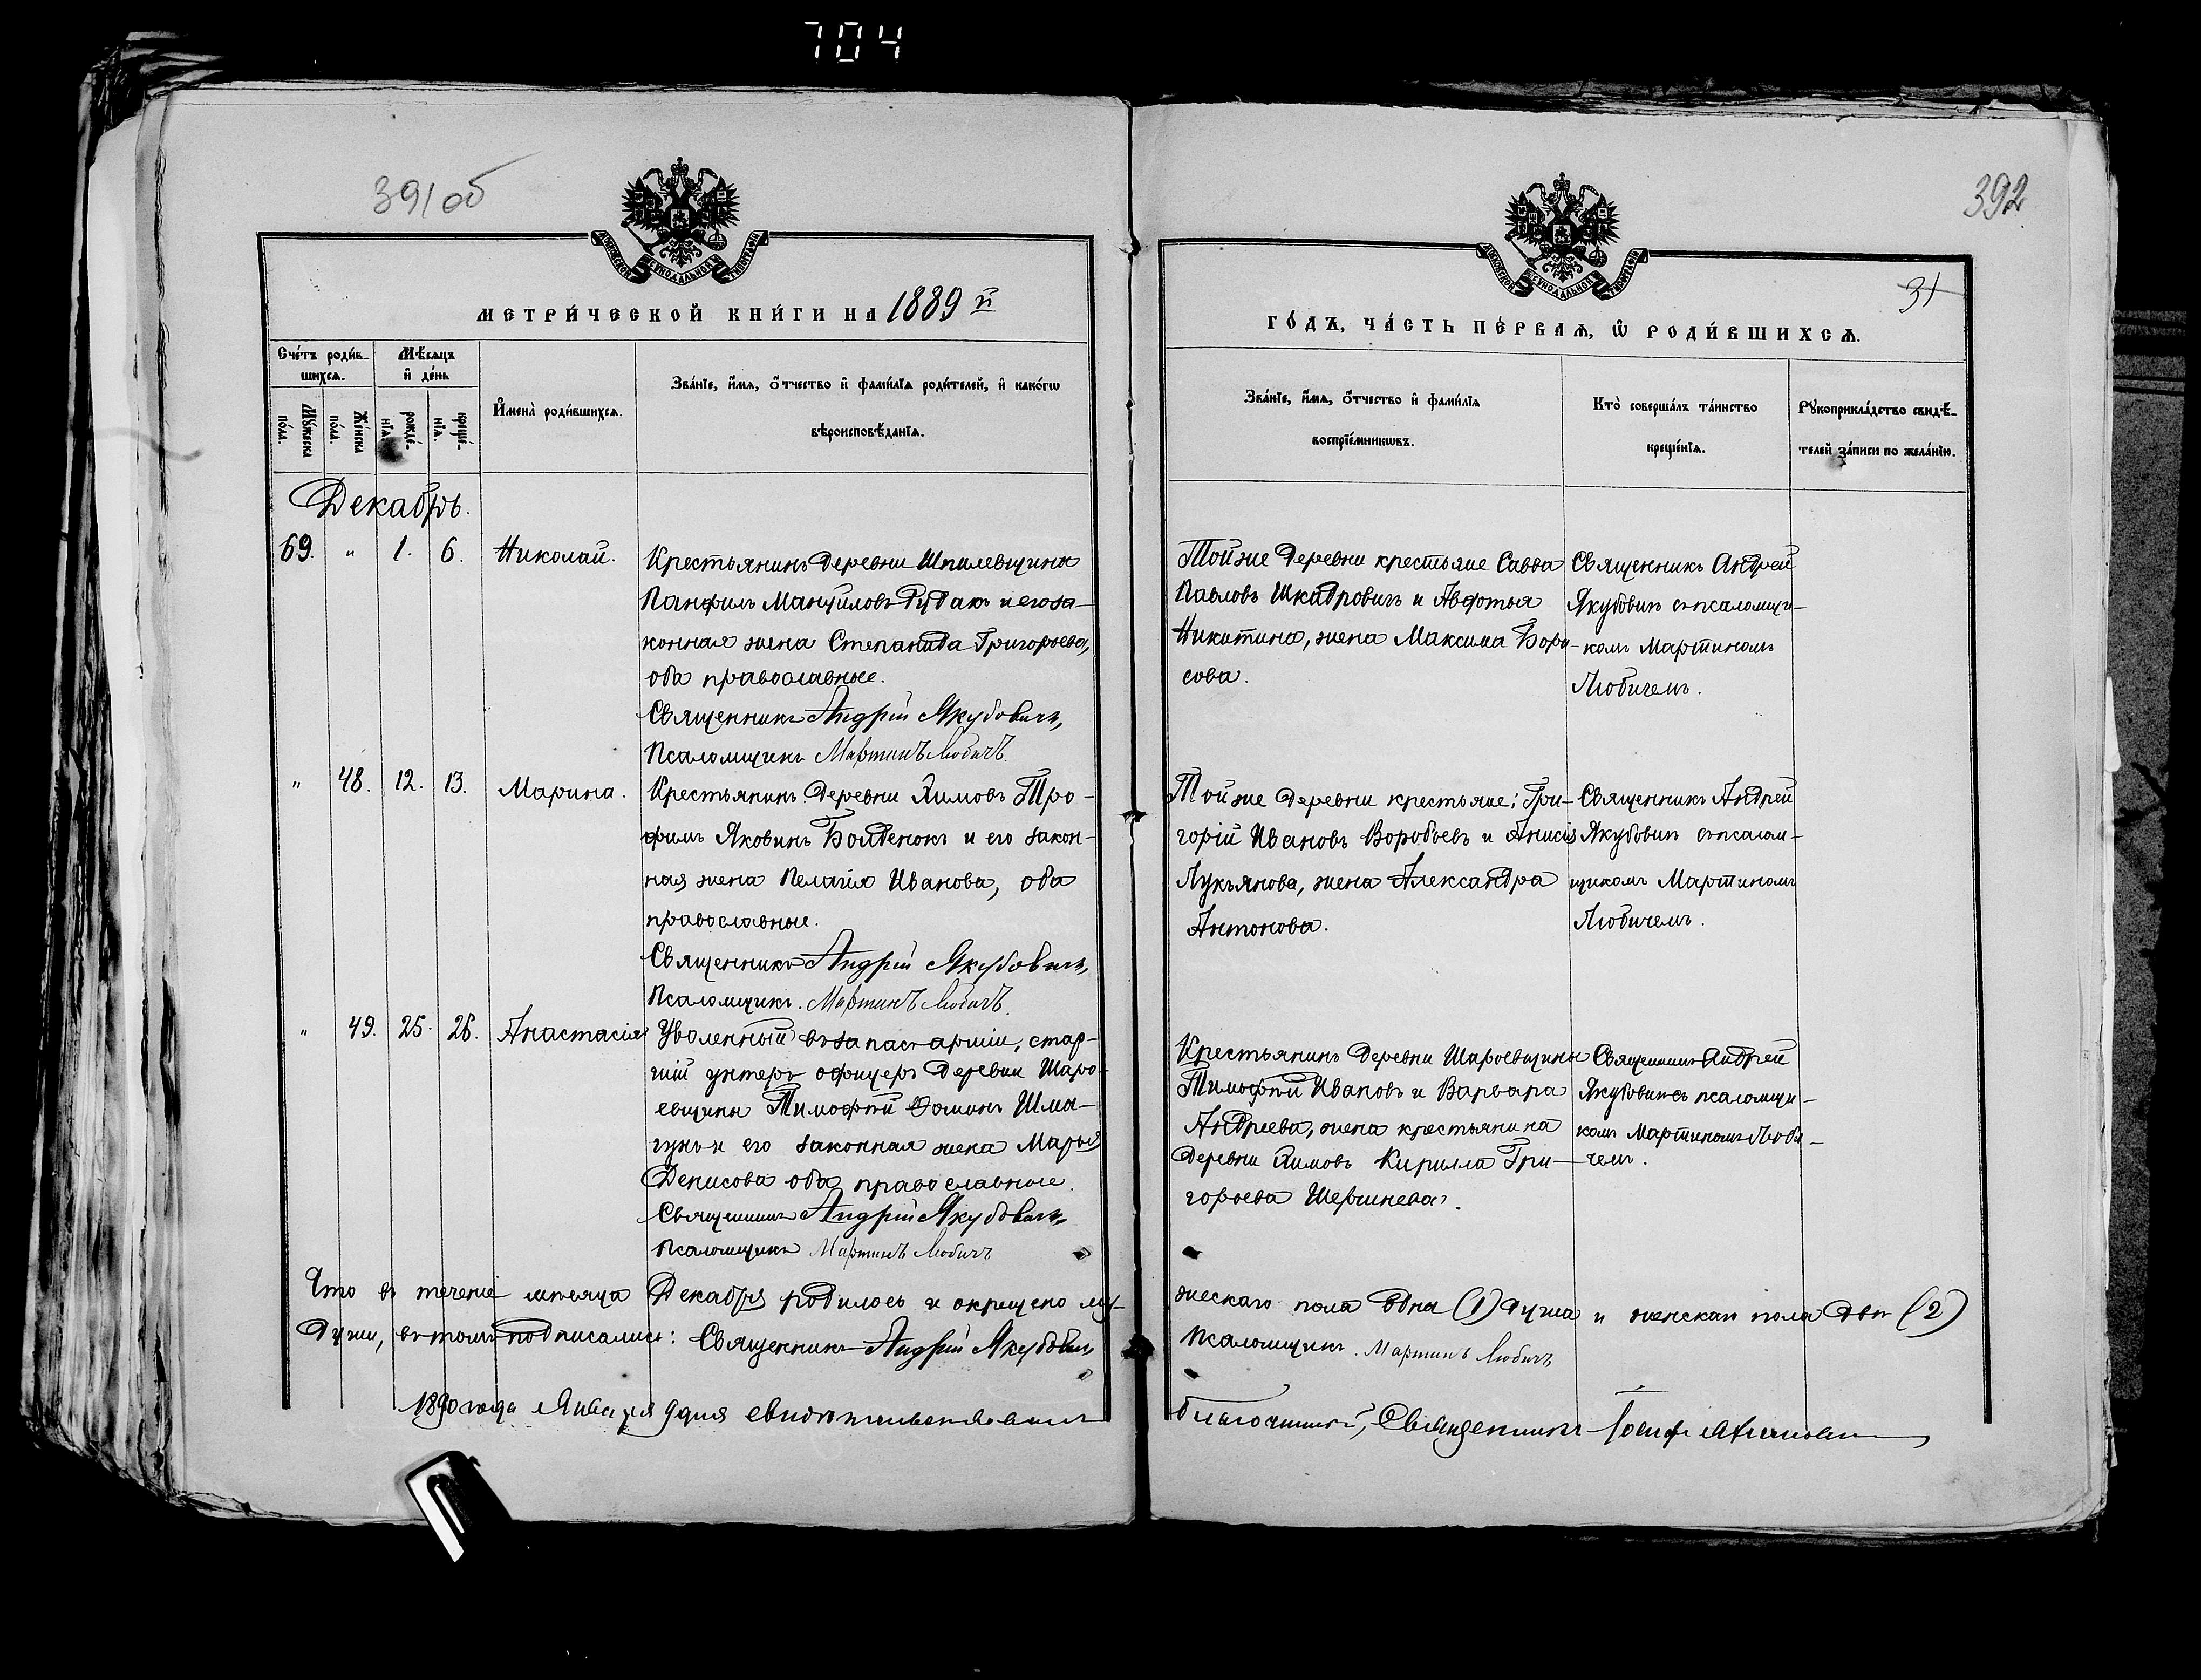 704
391 об
392
31
МОСКОВСКОЙ СѴНОДАЛЬНОЙ ТИПОГРАФІИ
МЕТРИ́ЧЕСКОЙ КНИ́ГИ НА 1889 й
Сче́тъ роди́в-
шихсѧ.
Мѣ́сѧцъ
и҆ де́нь
Мꙋ́жеска
по́ла.
Же́нска
по́ла.
рожде́-
нїѧ.
креще́-
нїѧ.
И҆мена̀ роди́вшихсѧ.
Зва́нїе, и҆́мѧ, ѻ҆́тчество и҆ фами́лїѧ роди́телей, и҆ како́гѡ
вѣроисповѣ́данїѧ.
Декабрь.
69. " 1. 6. Николай.
Крестьянинъ деревни Шпилевщины
Панфилъ Мануиловъ Рудакъ и его за-
конная жена Степанида Григорьева,
оба православные.
Священникъ Андрій Якубовичъ,
Псаломщикъ Мартинъ Любичъ.
" 48. 12. 13. Марина.
Крестьянинъ деревни Якимовъ Тро-
фимъ Яковинъ Болденокъ и его закон-
ная жена Пелагія Иванова, оба
православные.
Священникъ Андрій Якубовичъ,
Псаломщикъ. Мартинъ Любичъ.
" 49. 25. 26. Анастасія
Уволенный въ запасъ арміи, стар-
шій унтеръ офицеръ деревни Шаро-
евщины Тимофѣй Фоминъ Шма-
гунъ и его законная жена Марья
Денисова оба православные.
Священникъ Андрій Якубовичъ,
Псаломщикъ Мартинъ Любичъ
Что въ теченіе мѣсяца Декабря родилось и окрещено му-
души, въ томъ подписались: Священникъ Андрій Якубовичъ
1890 года Января 9 дня свидѣтельствовалъ
МОСКОВСКОЙ СѴНОДАЛЬНОЙ ТИПОГРАФІИ
ГО́ДЪ, ЧА́СТЬ ПЕ́РВАѦ, Ѽ РОДИ́ВШИХСѦ.
Зва́нїе, и҆́мѧ, ѻ҆́тчество и҆ фами́лїѧ
воспрїе́мникѡвъ.
Кто̀ соверша́лъ та́инство
креще́нїѧ.
Рꙋкоприкла́дство свидѣ́-
телей за́писи по жела́нїю.
Той же деревни крестьяне Савва
Павловъ Шкадровичъ и Авдотья
Никитина, жена Максима Бори-
сова.
Священникъ Андрей
Якубовичъ съ псаломщи-
комъ Мартиномъ
Любичемъ.
Той же деревни крестьяне: Гри-
горій Ивановъ Воробьевъ и Анисія
Лукьянова, жена Александра
Антонова.
Священникъ Андрей
Якубовичъ съ псалом-
щикомъ Мартиномъ
Любичемъ.
Крестьянинъ деревни Шароевщины
Тимофѣй Ивановъ и Варвара
Андреева, жена крестьянина
деревни Якимовъ Кирилла Гри-
горьева
Священникъ Андрей
Якубовичъ съ псаломщи-
комъ Мартиномъ Люби-
чемъ.
жескаго пола одна (1) душа и женскаго пола двѣ (2)
Псаломщикъ. Мартинъ Любичъ
благочинный, Священникъ Іосифъ